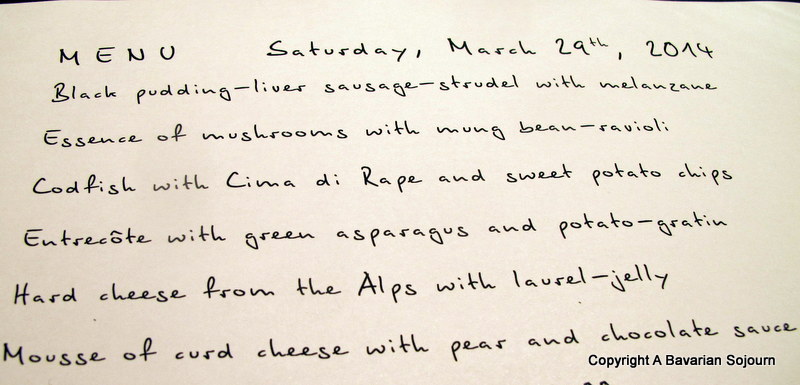 MENU Saturday, March 29th, 2014
Black pudding-liver sausage-strudel with melanzane
Essence of mushrooms with mung bean-ravioli
Codfish with Cima di Rape and sweet potato chips
Entrecôte with green asparagus and potato-gratin
Hard cheese from the Alps with laurel-jelly
Mousse of curd cheese with pear and chocolate sauce
Copyright A Bavarian Sojourn